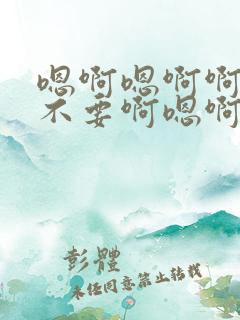 嗯啊嗯啊啊
不要啊嗯啊
彭體
未经同意禁止转载